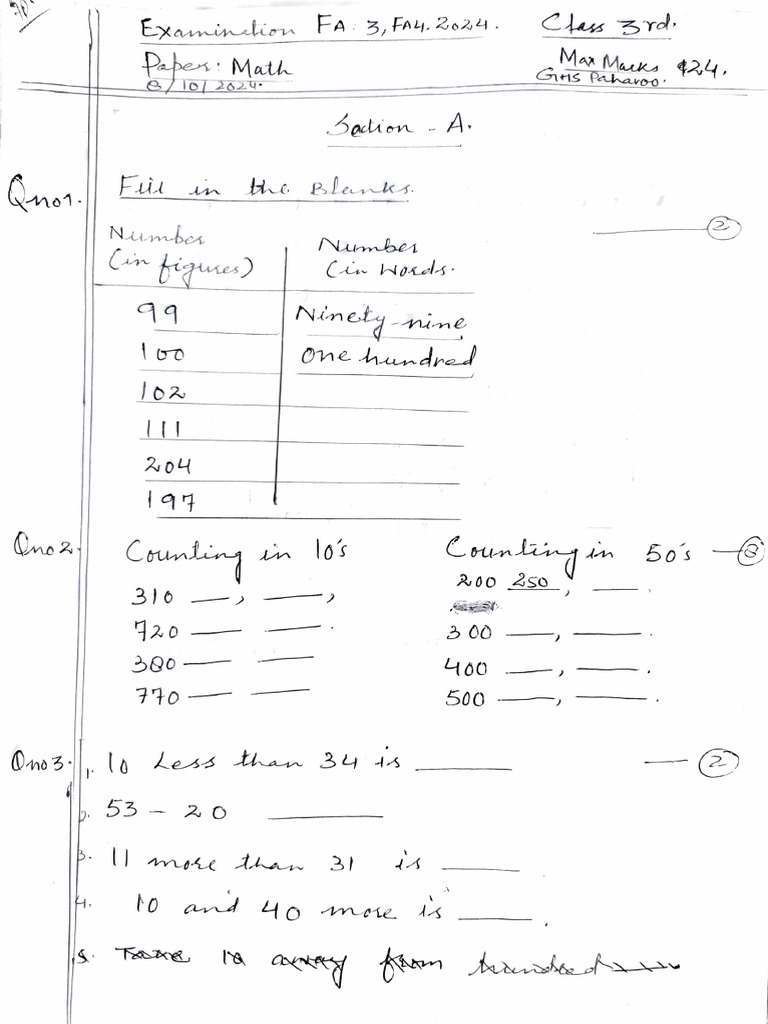 Examination FA: 3, FA4. 2024. Class 3rd.
Paper: Math Max Marks 24.
8/10/2024. GHS Paharoo.
Section - A.
Qno1. Fill in the Blanks.
2
Number (in figures) Number (in Words.
99 Ninety-nine
100 One hundred
102
111
204
197
Qno2. Counting in 10's Counting in 50's
310 —, —, 200 250, —.
720 — —. 300 —, —.
380 — — 400 —, —.
770 — — 500 —, —.
Qno3. 1. 10 Less than 34 is ____ 2
2. 53 - 20 ____
3. 11 more than 31 is ____
4. 10 and 40 more is ____.
5. Take 10 away from hundred